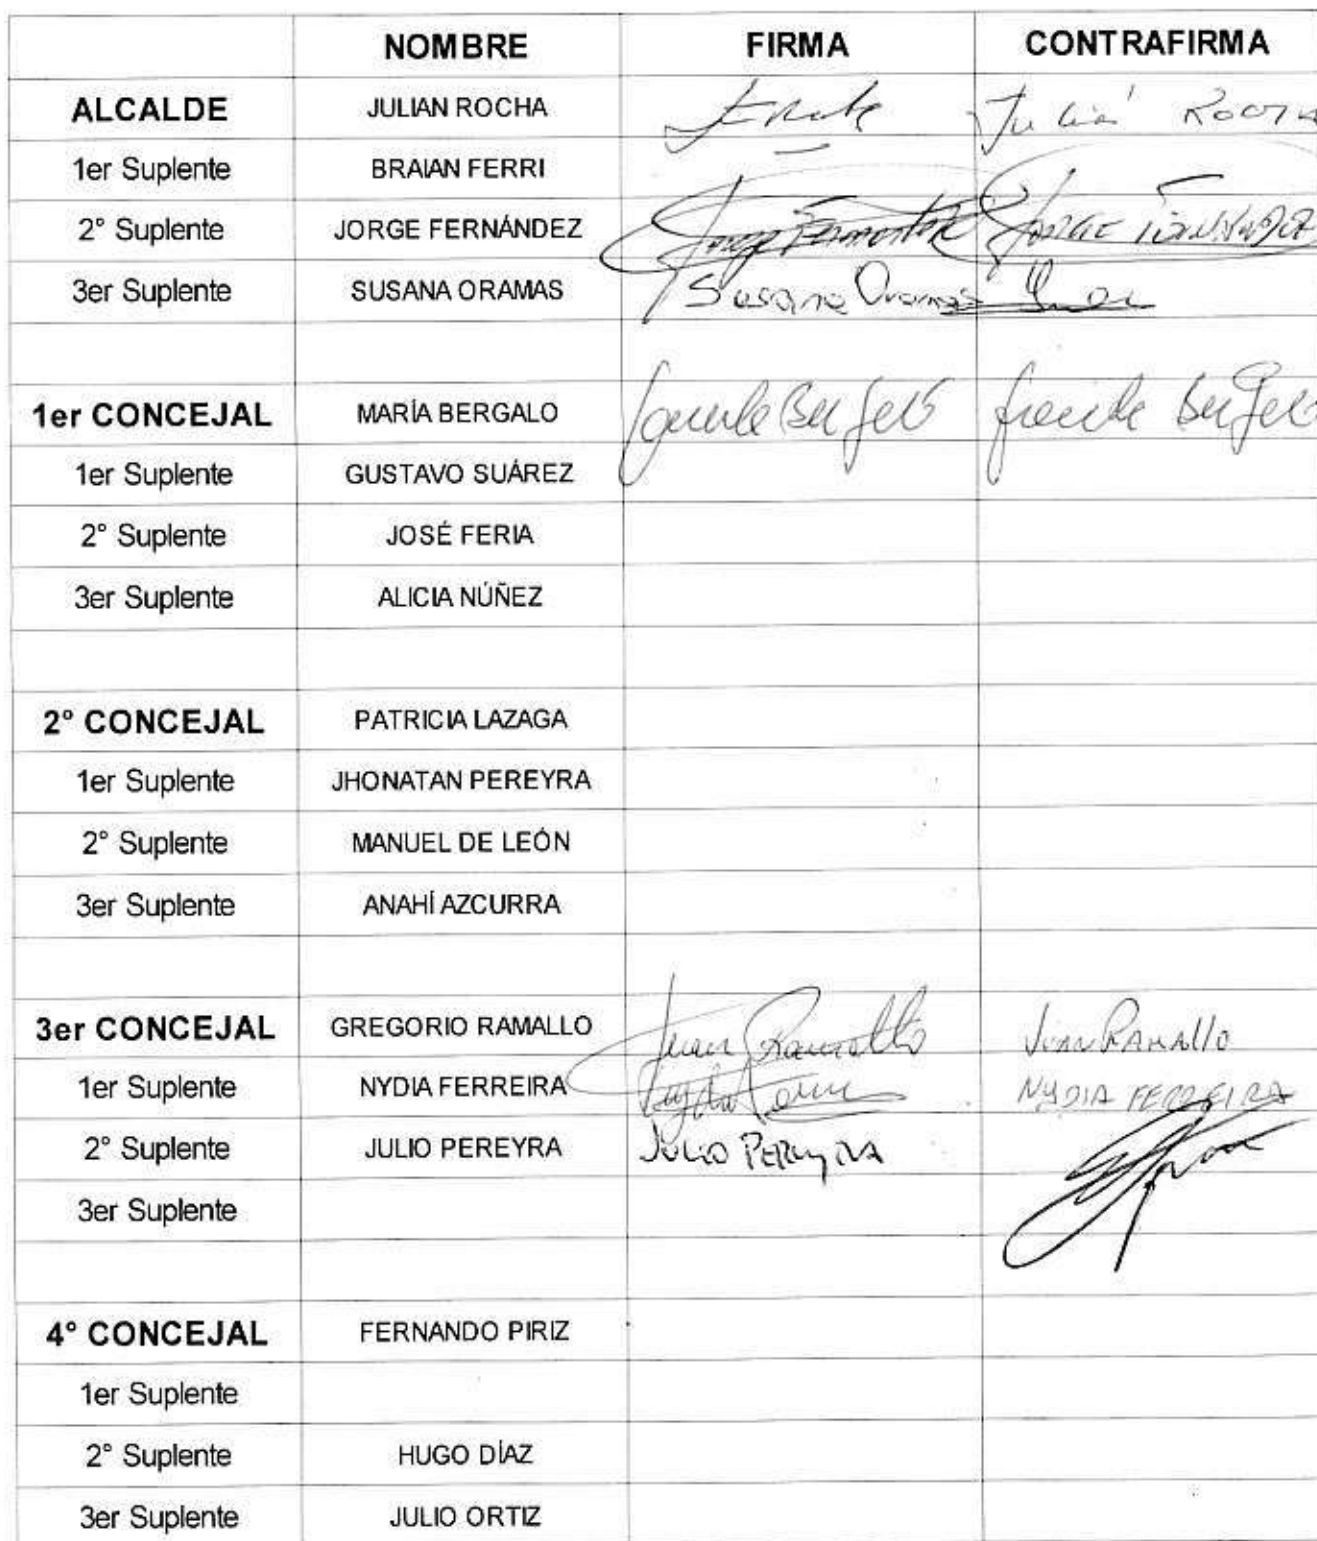 NOMBRE FIRMA CONTRAFIRMA
ALCALDE JULIAN ROCHA Julián Rocha
1er Suplente BRAIAN FERRI
2° Suplente JORGE FERNÁNDEZ Jorge Fernández JORGE FERNÁNDEZ
3er Suplente SUSANA ORAMAS Susana Oramas
1er CONCEJAL MARÍA BERGALO Bergalo Bergalo
1er Suplente GUSTAVO SUÁREZ
2° Suplente JOSÉ FERIA
3er Suplente ALICIA NÚÑEZ
2° CONCEJAL PATRICIA LAZAGA
1er Suplente JHONATAN PEREYRA
2° Suplente MANUEL DE LEÓN
3er Suplente ANAHÍ AZCURRA
3er CONCEJAL GREGORIO RAMALLO Juan Ramallo Juan Ramallo
1er Suplente NYDIA FERREIRA Nydia NYDIA FERREIRA
2° Suplente JULIO PEREYRA JULIO PEREYRA
3er Suplente
4° CONCEJAL FERNANDO PIRIZ
1er Suplente
2° Suplente HUGO DÍAZ
3er Suplente JULIO ORTIZ